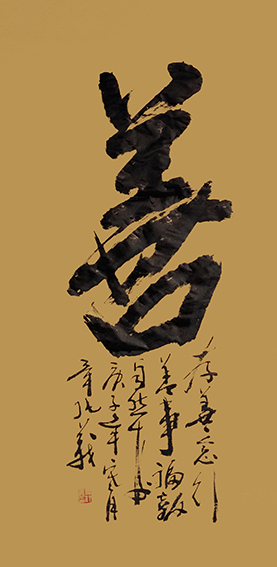 善
存善念行
善事福報
自然
庚子年月
章義